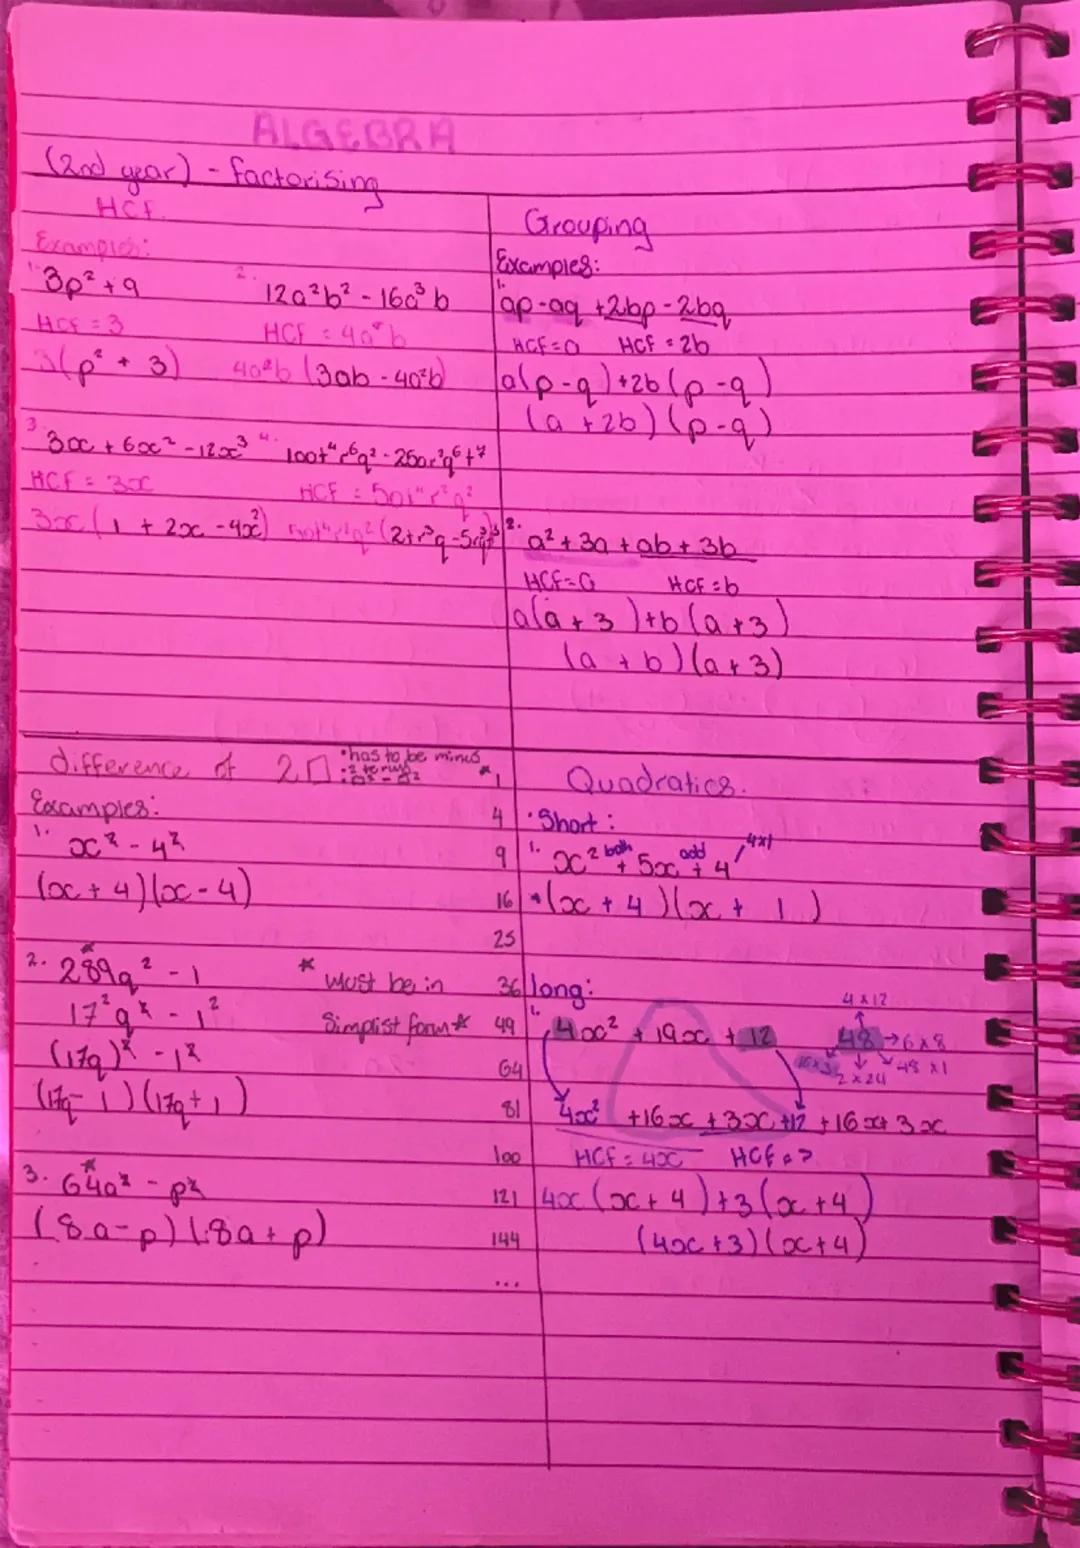 ALGEBRA
(2nd year) - factorising
HCF
Examples:
1. 3p² + 9
HCF = 3
3(p² + 3)
2. 12a²b² - 16a³b
HCF = 4a²b
4a²b (3ab - 4a²b)
3. 3x + 6x² - 12x³
HCF = 3x
3x(1 + 2x - 4x²)
4.
Grouping
Examples:
1. ap - aq + 2bp - 2bq
HCF = a HCF = 2b
a(p - q) + 2b(p - q)
(a + 2b)(p - q)
2. a² + 3a + ab + 3b
HCF = a HCF = b
a(a + 3) + b(a + 3)
(a + b)(a + 3)
difference of 2□
• has to be minus
• 2 terms
Examples:
1. x² - 4²
(x + 4)(x - 4)
2. 289q² - 1
17²q² - 1²
(17q)² - 1²
(17q - 1)(17q + 1)
* must be in
Simplist form *
3. 64a² - p²
(8a - p)(8a + p)
* 1
4
9
16
25
36
49
64
81
100
121
144
...
Quadratics.
• Short:
1. x² + 5x + 4
both add 4x1
(x + 4)(x + 1)
long:
1. 4x² + 19x + 12
4 x 12
48 → 6 x 8
16x3 2 x 24 48 x 1
4x² + 16x + 3x + 12 + 16x + 3x
HCF = 4x HCF = 3
4x(x + 4) + 3(x + 4)
(4x + 3)(x + 4)